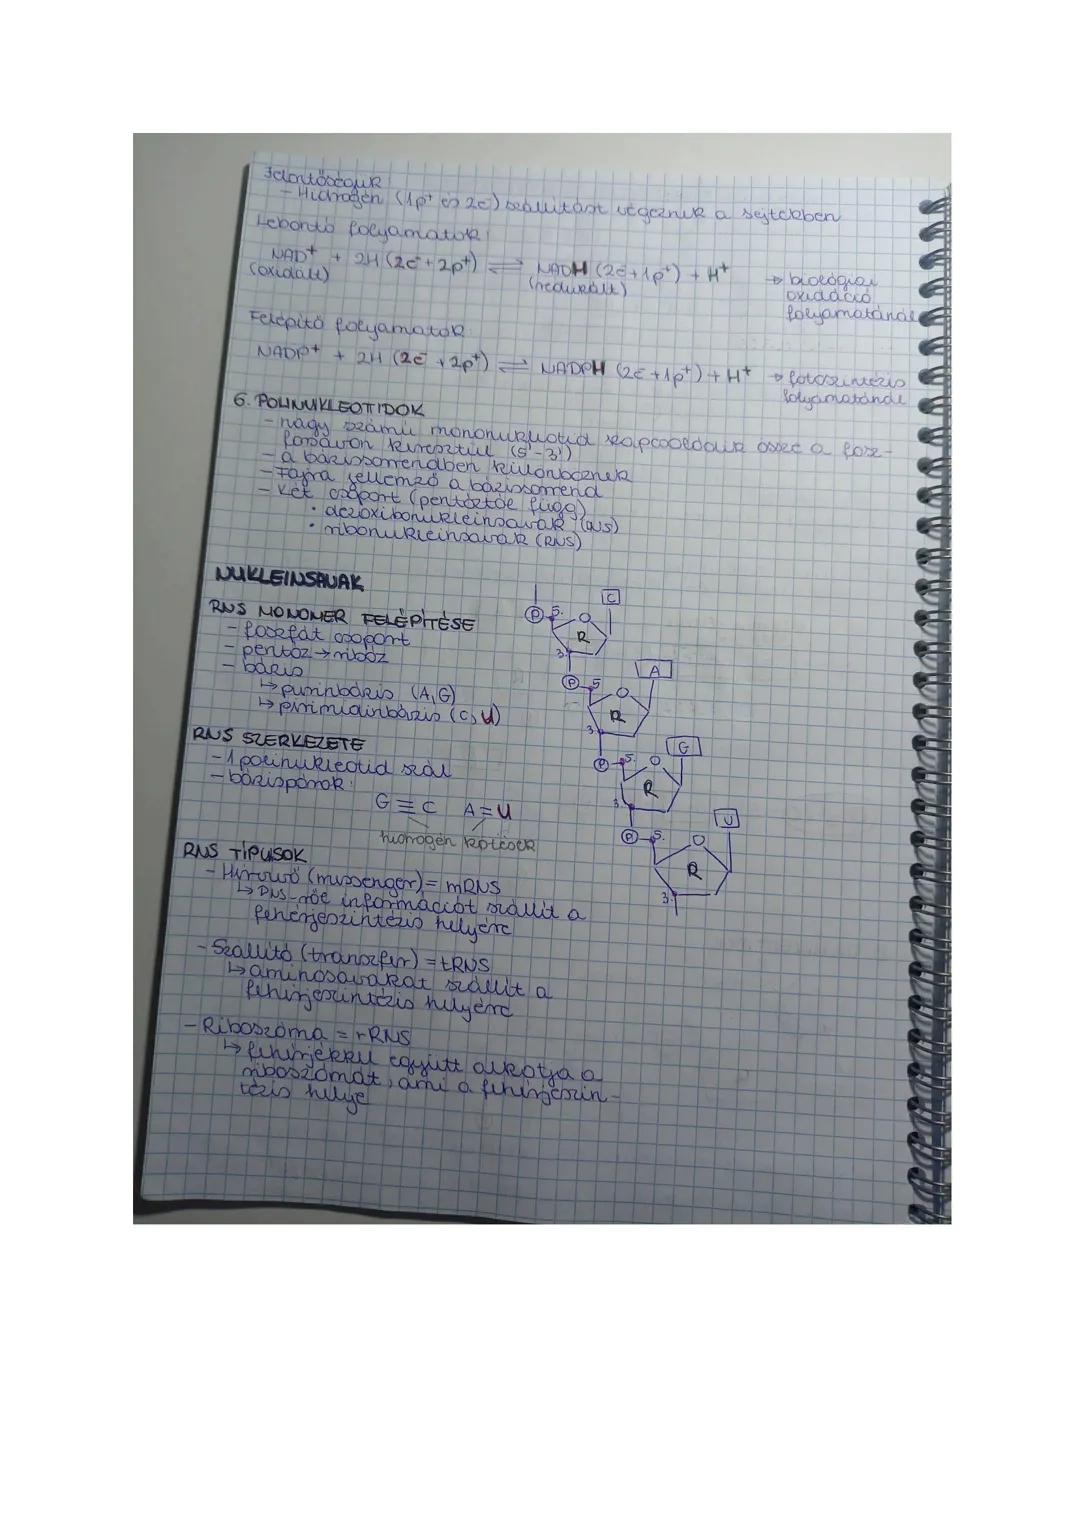 Jelentőségük
- Hidrogén (1p⁺ és 2e⁻) szállítást végeznek a sejtekben
Lebontó folyamatok:
NAD⁺ + 2H (2e⁻ + 2p⁺) ⇌ NADH (2e⁻ + 1p⁺) + H⁺ → biológiai
(oxidált) (redukált) oxidáció
folyamatánál
Felépítő folyamatok:
NADP⁺ + 2H (2e⁻ + 2p⁺) ⇌ NADPH (2e⁻ + 1p⁺) + H⁺ → fotoszintézis
folyamatánál
6. POLINUKLEOTIDOK
- nagy számú mononukleotid kapcsolódik össze a fosz-
forsavon keresztül (5'-3')
- a bázissorrendben különböznek
- Fajra jellemző a bázissorrend
- Két csoport (pentóztól függ)
• dezoxiribonukleinsavak (DNS)
• ribonukleinsavak (RNS)
NUKLEINSAVAK
RNS MONOMER FELÉPÍTÉSE
- foszfát csoport
- pentóz → ribóz
- bázis
↳ purinbázis (A, G)
↳ pirimidinbázis (C, U)
RNS SZERKEZETE
- 1 polinukleotid szál
- bázispárok:
G ≡ C A = U
hidrogén kötések
RNS TÍPUSOK
- Hírvivő (messenger) = mRNS
↳ DNS-ről információt szállít a
fehérjeszintézis helyére
- Szállító (transzfer) = tRNS
↳ aminosavakat szállít a
fehérjeszintézis helyére
- Riboszóma = rRNS
↳ fehérjékkel együtt alkotja a
riboszómát, ami a fehérjeszin-
tézis helye
P 5. O C
R
3.
P 5 O A
R
3.
P 5. O G
R
3.
P 5. O U
R
3.